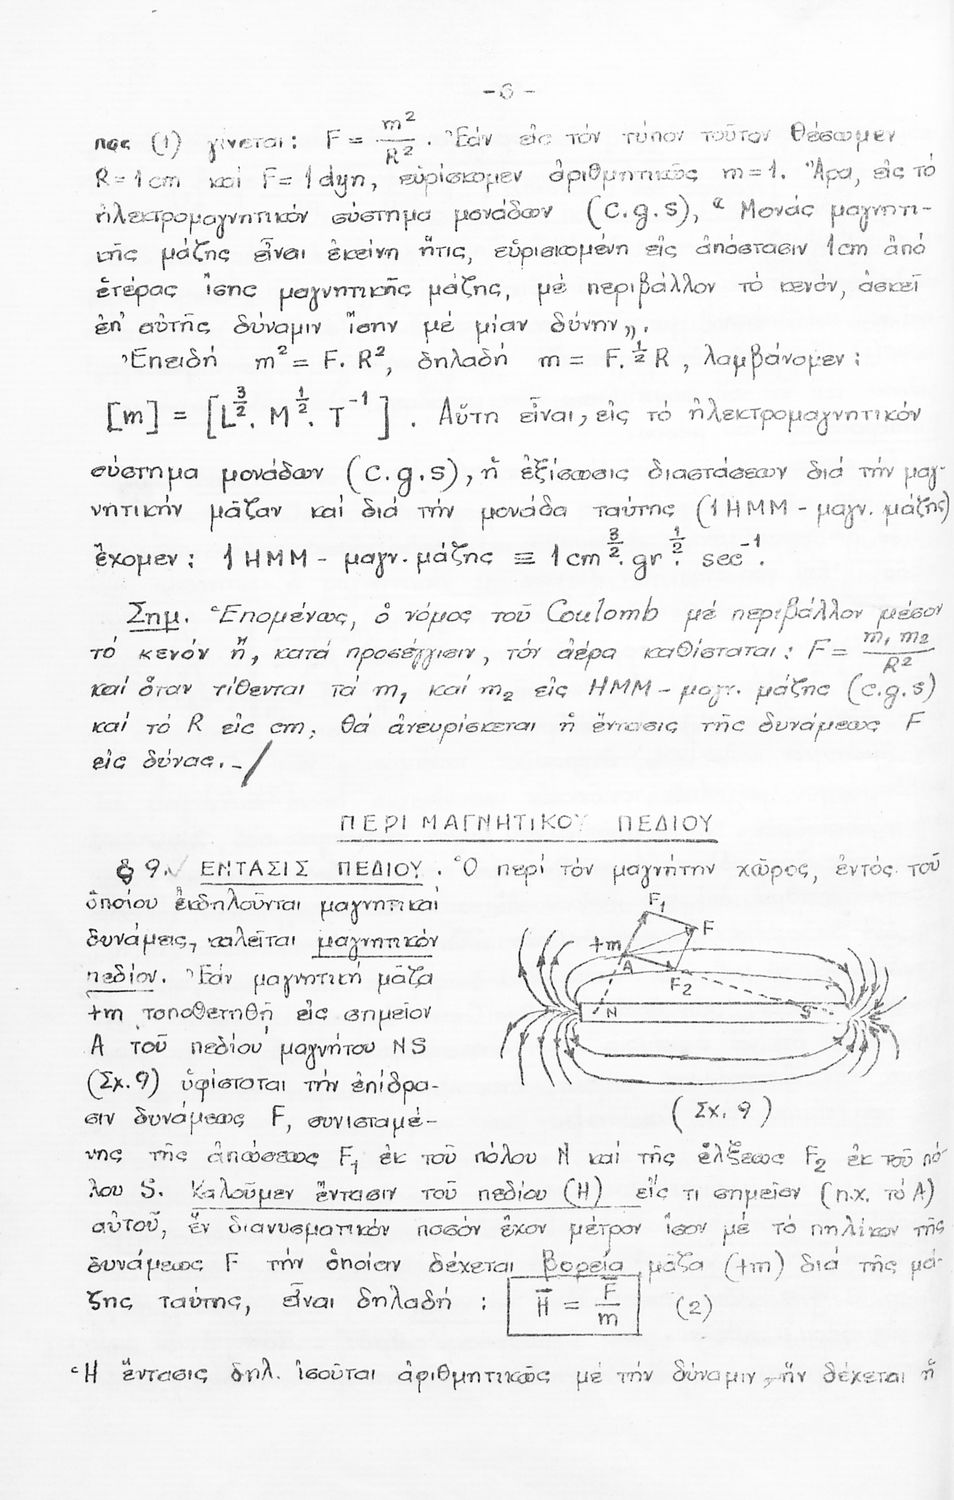 -6-
πος (1) γίνεται: F = m²/R² . Ἐάν εἰς τόν τύπον τοῦτον θέσωμεν
R=1cm καί F=1dyn, εὑρίσκομεν ἀριθμητικῶς m=1. Ἄρα, εἰς τό
ἠλεκτρομαγνητικόν σύστημα μονάδων (c.g.s), « Μονάς μαγνητι-
κῆς μάζης εἶναι ἐκείνη ἥτις, εὑρισκομένη εἰς ἀπόστασιν 1cm ἀπό
ἑτέρας ἴσης μαγνητικῆς μάζης, μέ περιβάλλον τό κενόν, ἀσκεῖ
ἐπ' αὐτῆς δύναμιν ἴσην μέ μίαν δύνην».
Ἐπειδή m² = F. R², δηλαδή m = F.½ R , λαμβάνομεν:
[m] = [L^{3/2}. M^{1/2}. T^{-1}] . Αὕτη εἶναι, εἰς τό ἠλεκτρομαγνητικόν
σύστημα μονάδων (c.g.s), ἡ ἐξίσωσις διαστάσεων διά τήν μαγ-
νητικήν μᾶζαν καί διά τήν μονάδα ταύτης (1 ΗΜΜ - μαγν. μάζης)
ἔχομεν: 1 ΗΜΜ - μαγν. μάζης ≡ 1 cm^{3/2}. gr^{1/2}. sec^{-1}.
Σημ. Ἑπομένως, ὁ νόμος τοῦ Coulomb μέ περιβάλλον μέσον
τό κενόν ἤ, κατά προσέγγισιν, τόν ἀέρα καθίσταται: F = m₁ m₂/R²
καί ὅταν τίθενται τά m₁ καί m₂ εἰς ΗΜΜ - μαγν. μάζης (c.g.s)
καί τό R εἰς cm, θά ἀνευρίσκεται ἡ ἔντασις τῆς δυνάμεως F
εἰς δύνας.-/
ΠΕΡΙ ΜΑΓΝΗΤΙΚΟΥ ΠΕΔΙΟΥ
§ 9. ΕΝΤΑΣΙΣ ΠΕΔΙΟΥ. Ὁ περί τόν μαγνήτην χῶρος, ἐντός τοῦ
ὁποίου ἐκδηλοῦνται μαγνητικαί
δυνάμεις, καλεῖται μαγνητικόν
πεδίον. Ἐάν μαγνητική μᾶζα
+m τοποθετηθῇ εἰς σημεῖον
Α τοῦ πεδίου μαγνήτου NS
(Σχ. 9) ὑφίσταται τήν ἐπίδρα-
σιν δυνάμεως F, συνισταμέ-
F₁
F
+m
A
F₂
N
S
(Σχ. 9)
νης τῆς ἀπώσεως F₁ ἐκ τοῦ πόλου Ν καί τῆς ἕλξεως F₂ ἐκ τοῦ πό-
λου S. Καλοῦμεν ἔντασιν τοῦ πεδίου (Η) εἴς τι σημεῖον (π.χ. τό Α)
αὐτοῦ, ἕν διανυσματικόν ποσόν ἔχον μέτρον ἴσον μέ τό πηλίκον τῆς
δυνάμεως F τήν ὁποίαν δέχεται βορεία μᾶζα (+m) διά τῆς μά-
ζης ταύτης, εἶναι δηλαδή : H̄ = F̄/m (2)
Ἡ ἔντασις δηλ. ἰσοῦται ἀριθμητικῶς μέ τήν δύναμιν, ἥν δέχεται ἡ